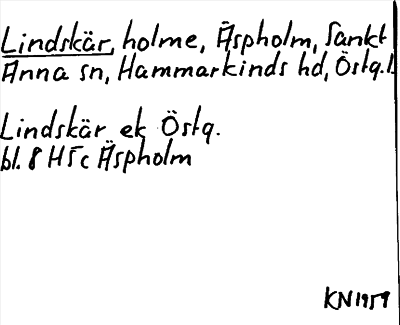 Lindskär, holme, Äspholm, Sankt
Anna sn, Hammarkinds hd, Östg.l.
Lindskär ek Östg.
bl. 8 H5c Äspholm
KN1959